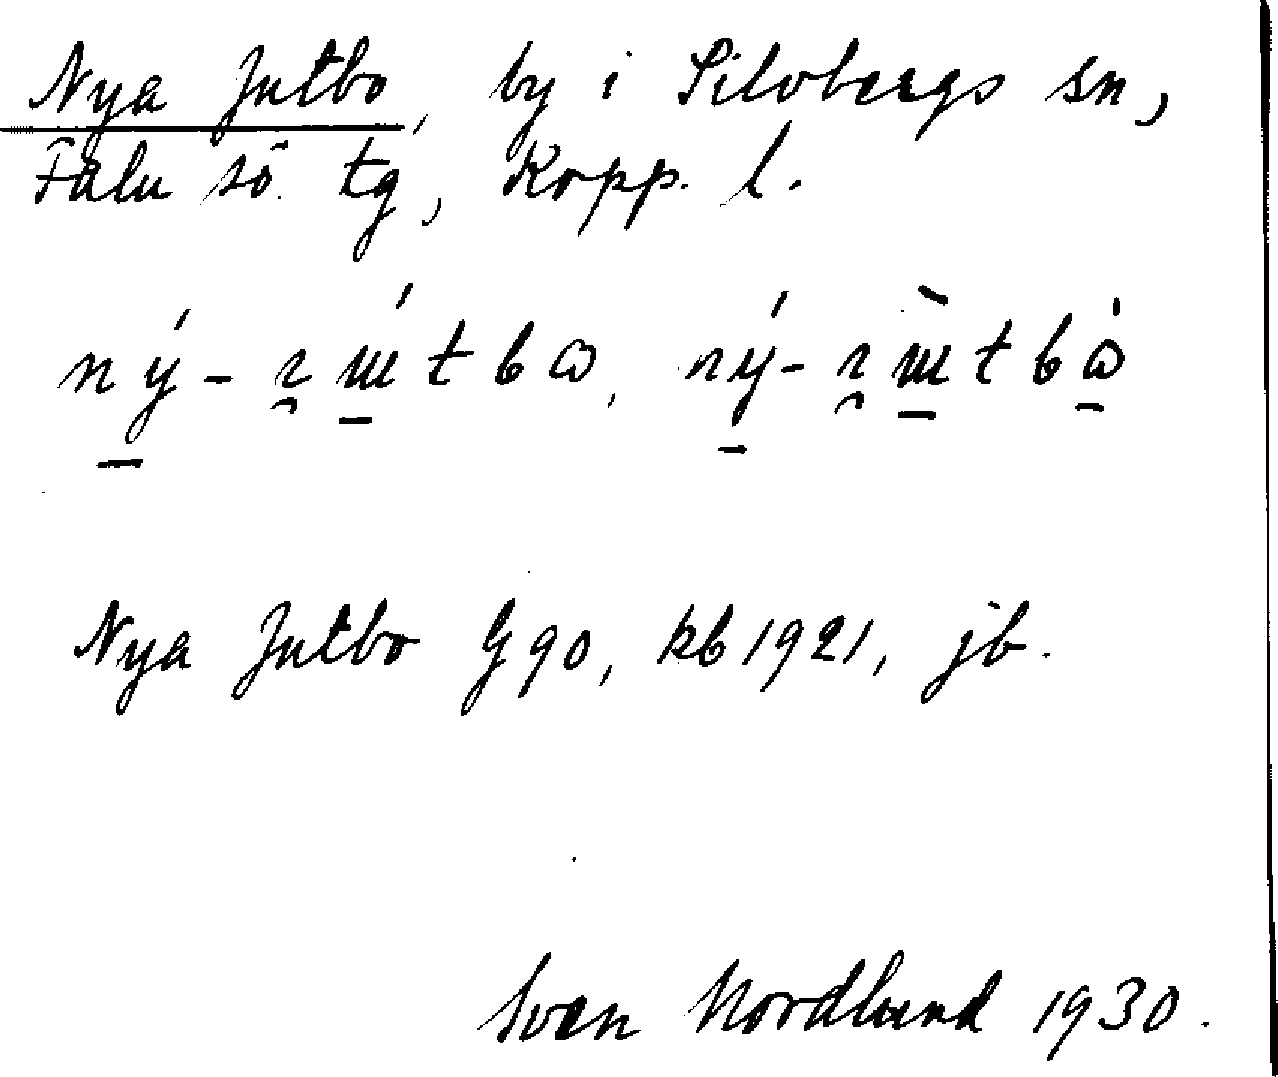 Nya Jutbo, by i Silvbergs sn,
Falu sö. tg, Kopp. l.
Nya Jutbo G 90, kb 1921, jb.
Sven Nordlund 1930.